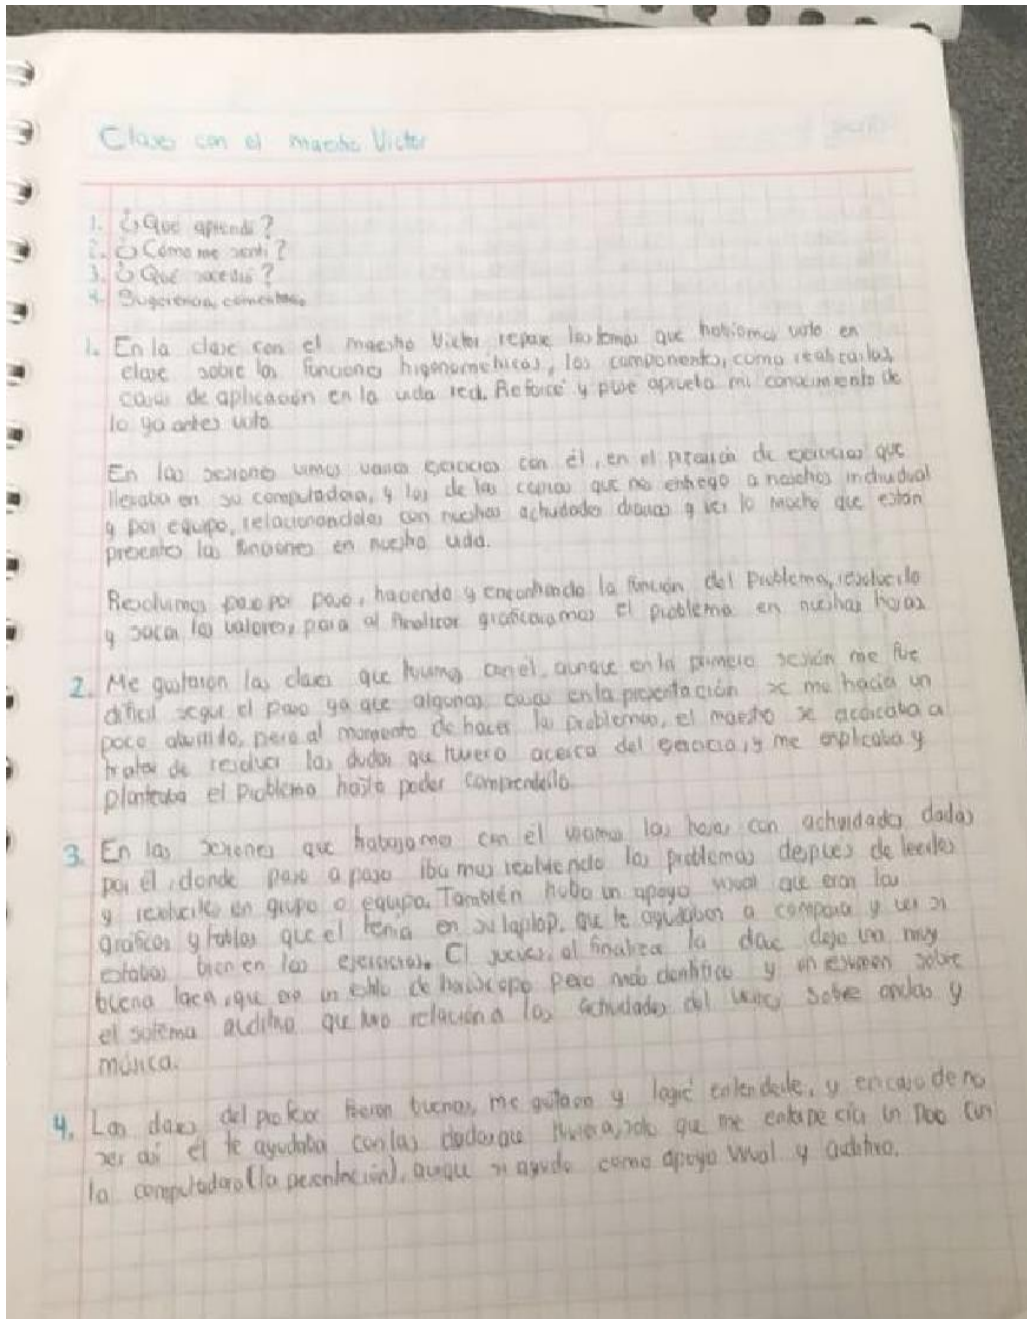 Clases con el maestro Victor
1. ¿Qué aprendí?
2. ¿Cómo me sentí?
3. ¿Qué sucedió?
4. Sugerencia, comentario
1. En la clase con el maestro Victor repase los temas que habiamos visto en
clase sobre las funciones trigonometricas, los componentes, como realizarlas,
casos de aplicación en la vida real. Reforcé y puse aprueba mi conocimiento de
lo ya antes visto.
En las sesiones vimos varios ejercicios con él, en el de ejercicios que
llevaba en su computadora, y los de las copias que nos entrego a nosotros individual
y por equipo, relacionandolos con nuestras actividades diarias y ver lo mucho que estan
presentes las funciones en nuestra vida.
Resolvimos paso por paso, haciendo y encontrando la función del problema, resolverlo
y sacar los valores, para al finalizar graficaramos el problema en nuestras hojas
2. Me gustaron las clases que tuvimos con él, aunque en la primera sesión me fue
dificil seguir el paso ya que algunas cosas en la presentación se me hacia un
poco aburrido, pero al momento de hacer los problemas, el maestro se acercaba a
tratar de resolver las dudas que tuviera acerca del ejercicio, y me explicaba y
planteaba el problema hasta poder comprenderlo.
3. En las sesiones que trabajamos con él usamos las hojas con actividades dadas
por él, donde paso a paso ibamos resolviendo los problemas despues de leerlos
y resolverlos en grupo o equipo. También hubo un apoyo visual que eran las
graficas y tablas que el tenia en su laptop, que te ayudaban a compara y ver si
estabas bien en los ejercicios. El jueves, al finalizar la clase dejo una muy
buena tarea, que era un estilo de pero más cientifico y un resumen sobre
el sistema auditivo que tuvo relación a las actividades del sobre ondas y
música.
4. Las clases del profesor fueron buenas, me gustaron y logré entenderle, y en caso de no
ser asi él te ayudaba con las dudas que tuviera, solo que me entorpecia un poco con
la computadora (la presentación), aunque si ayudo como apoyo visual y auditivo.